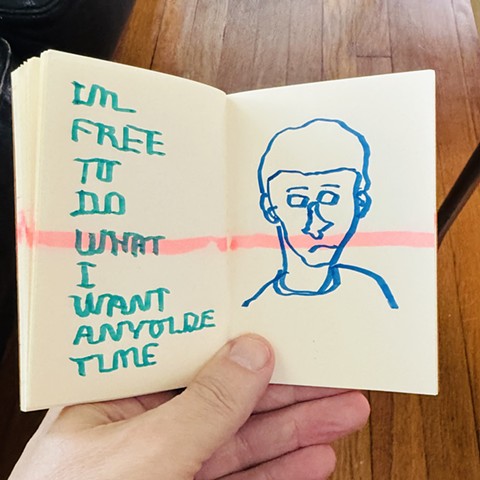 IM
FREE
TO
DO
WHAT
I
WANT
ANYOLDE
TIME